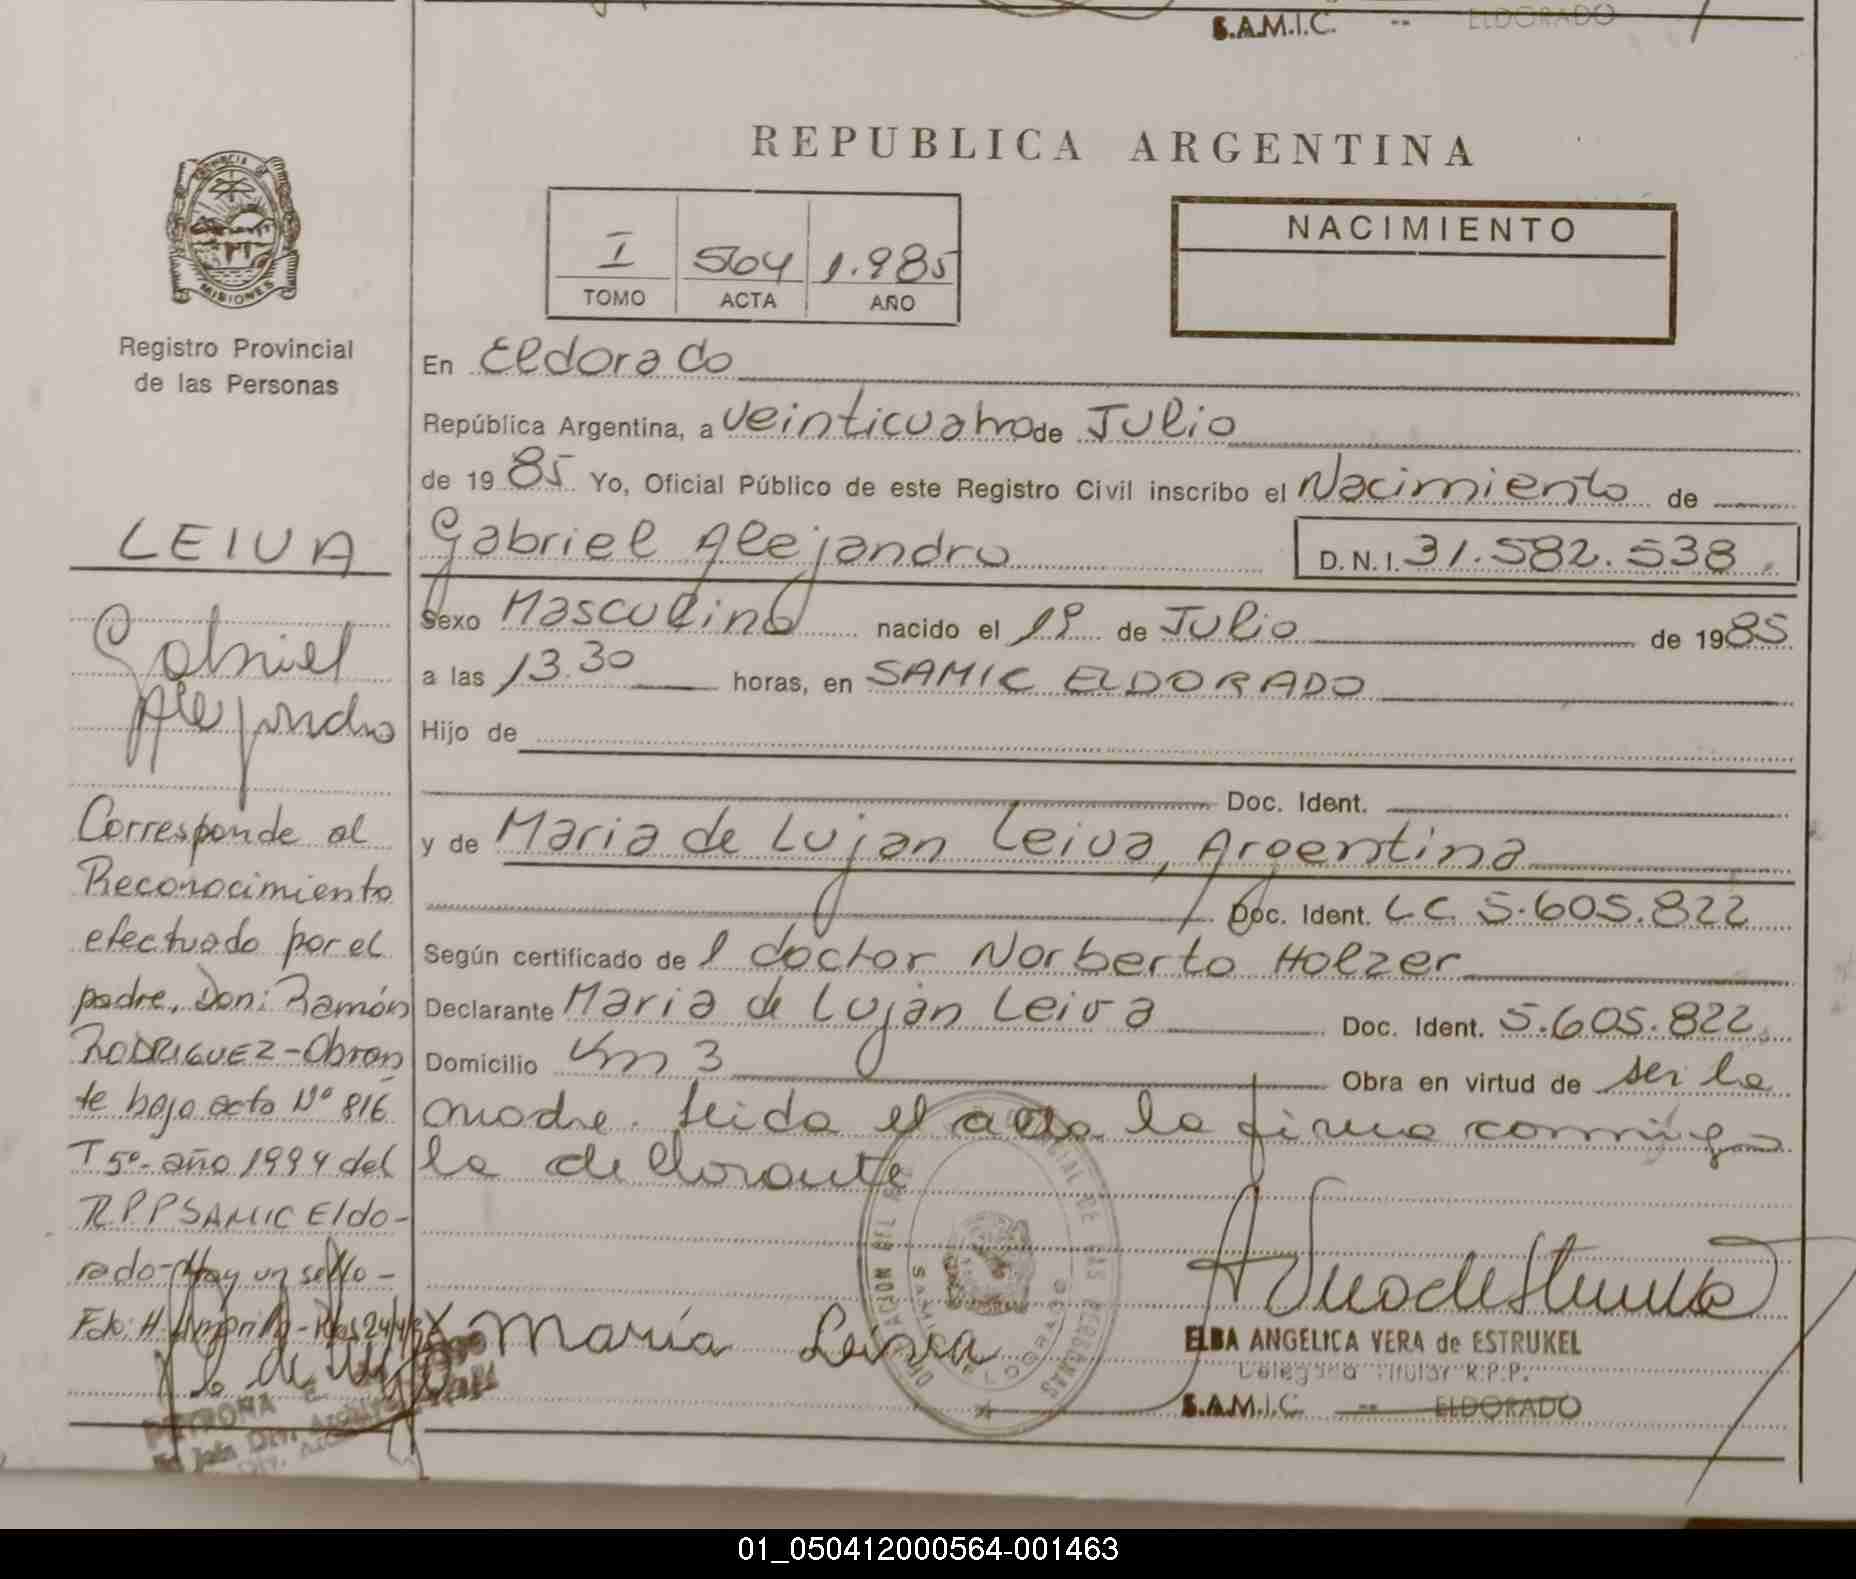 S.A.M.I.C. -- ELDORADO
REPUBLICA ARGENTINA
PROVINCIA
MISIONES
Registro Provincial
de las Personas
I 564 1.985
TOMO ACTA AÑO
NACIMIENTO
En Eldorado
República Argentina, a veinticuatro de Julio
de 1985 Yo, Oficial Público de este Registro Civil inscribo el Nacimiento de
Gabriel Alejandro D.N.I. 31.582.538.
Sexo Masculino nacido el 19 de Julio de 1985
a las 13.30 horas, en SAMIC ELDORADO
Hijo de
Doc. Ident.
y de Maria de Lujan Leiva, Argentina
Doc. Ident. LC. 5.605.822
Según certificado del doctor Norberto Holzer
Declarante Maria de Luján Leiva Doc. Ident. 5.605.822.
Domicilio Km 3 Obra en virtud de ser la
madre. Leida el acta la firma conmigo
la declarante
María Leiva
ELBA ANGELICA VERA de ESTRUKEL
Delegada Titular R.P.P.
S.A.M.I.C. -- ELDORADO
LEIVA
Gabriel
Alejandro
Corresponde al
Reconocimiento
efectuado por el
padre, Don: Ramón
RODRIGUEZ-Obran
te bajo acta Nº 816
T 5º- año 1994 del
RPP SAMIC Eldo-
rado-Hay un sello-
Fdo: H.
PETRONA E.
01_050412000564-001463